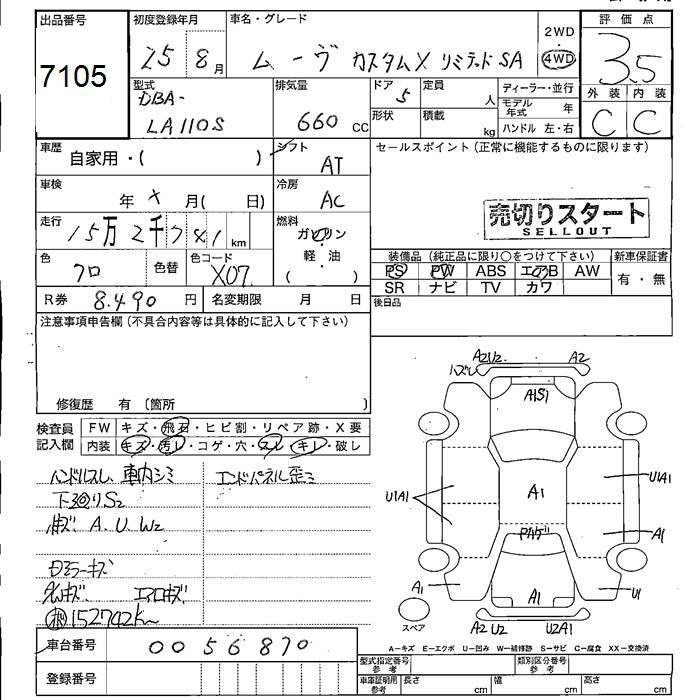 出品番号
7105
初度登録年月
25 8月
車名・グレード
ムーヴ カスタムX リミテッド SA
2WD
4WD
評価点
3.5
外装 内装
C C
型式
DBA-
LA110S
排気量
660 CC
ドア
5
定員
人
形状
積載
kg
ディーラー・並行
モデル年式 年
ハンドル 左・右
車歴
自家用・( )
シフト
AT
セールスポイント(正常に機能するものに限ります)
車検
年 月( 日)
冷房
AC
売切りスタート
SELLOUT
走行
15万2千741 km
燃料
ガソリン
軽・油
( )
色
クロ
色替
色コード
X07
装備品(純正品に限り○をつけて下さい)
PS PW ABS エアB AW
SR ナビ TV カワ
新車保証書
有・無
R券 8,490 円
名変期限 月 日
後日品
注意事項申告欄(不具合内容等は具体的に記入して下さい)
修復歴 有 〔箇所 〕
検査員記入欄
FW キズ・飛石・ヒビ割・リペア跡・X要
内装 キズ・汚レ・コゲ・穴・スレ・キレ・破レ
ハンドルスレ 車内シミ
エンドパネル歪ミ
下廻りS2
A、U、W2
ドアミラーキズ
エアロキズ
152742K~
車台番号 0056870
登録番号
ハズレ
A2U2 A2
A1S1
U1A1
A1
U1A1
A1
A1
A1
U1
スペア
A2 U2 U2A1
A-キズ E-エクボ U-凹み W-補修跡 S-サビ C-腐食 XX-交換済
型式指定番号 参考
類別区分番号 参考
車庫証明用 参考
長さ cm
幅 cm
高さ cm